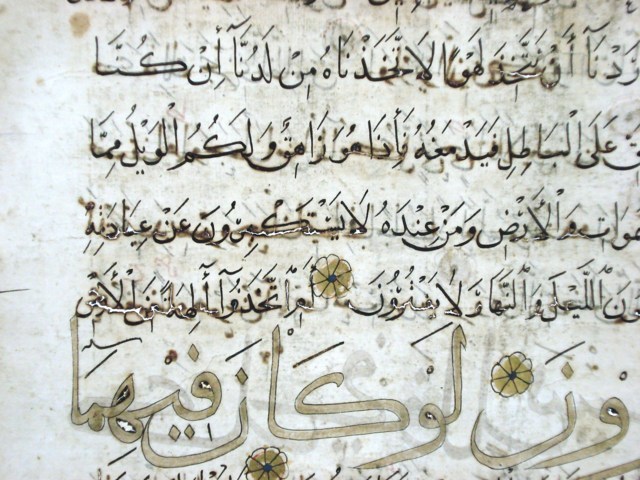 أَرَدْنَآ أَن نَّتَّخِذَ لَهْوًا لَّاتَّخَذْنَاهُ مِن لَّدُنَّآ إِن كُنَّا
عَلَى الْبَاطِلِ فَيَدْمَغُهُ فَإِذَا هُوَ زَاهِقٌ وَلَكُمُ الْوَيْلُ مِمَّا
وَالْأَرْضِ وَمَنْ عِندَهُ لَا يَسْتَكْبِرُونَ عَنْ عِبَادَتِهِ
الَّيْلَ وَالنَّهَارَ لَا يَفْتُرُونَ أَمِ اتَّخَذُوٓا۟ آلِهَةً مِّنَ الْأَرْضِ
ونَ لَوْ كَانَ فِيهِمَا